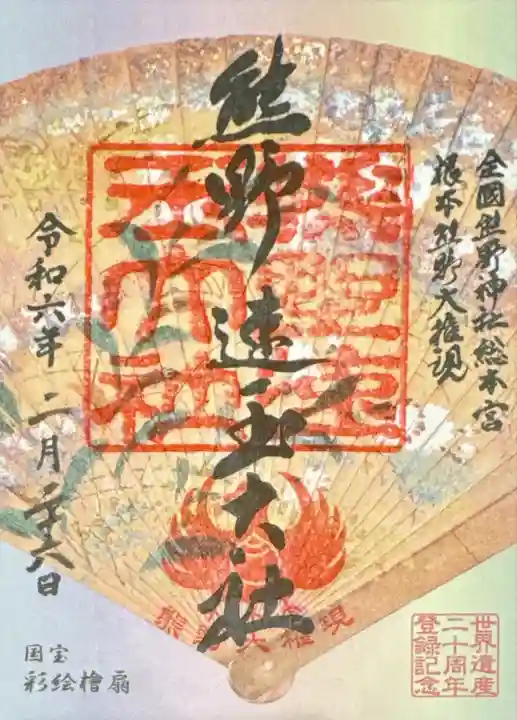 全國熊野神社総本宮
根本熊野大権現
熊野速玉大社
令和六年 二月二十八日
熊野大権現
世界遺産
二十周年
登録記念
国宝
彩絵檜扇